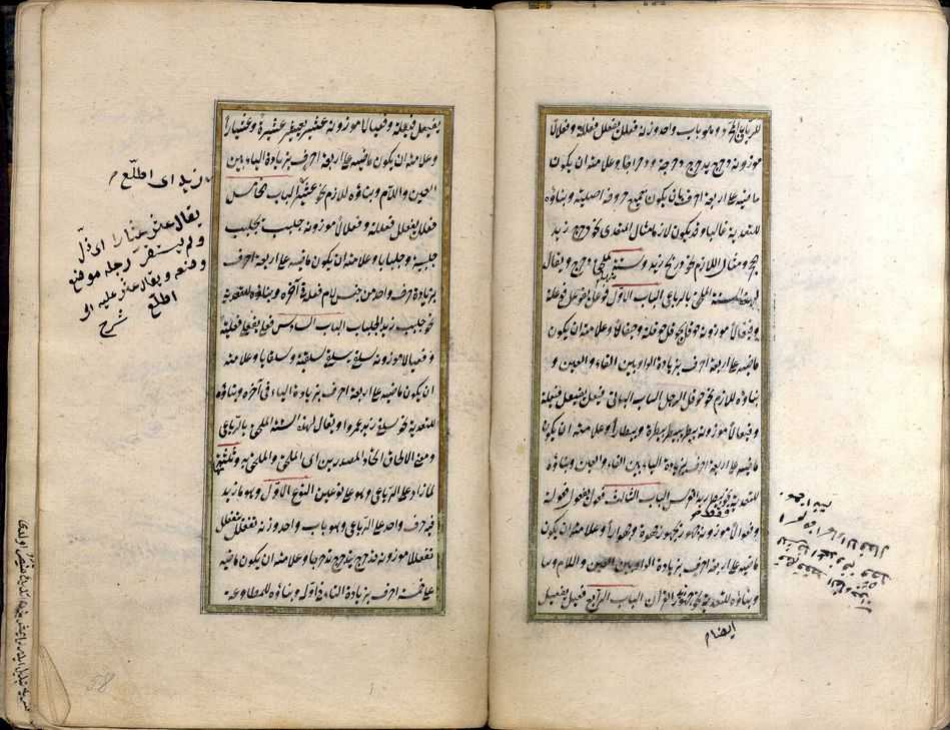 للرباعي المجرد وهو باب واحد وزنه فعلل يفعلل فعللة وفعلالا
موزونه دحرج يدحرج دحرجة ودحراجا وعلامته ان يكون
ماضيه على اربعة احرف بان يكون جميع حروفه اصلية وبناؤه
للتعدية غالبا وقد يكون لازما مثال المتعدى نحو دحرج زيد
الحجر ومثال اللازم نحو دربح زيد وستة لملحق دحرج ويقال
لهذه الستة الملحق بالرباعى الباب الاول فوعل يفوعل فوعلة
وفيعالا موزونه حوقل يحوقل حوقلة وحيقالا وعلامته ان يكون
ماضيه على اربعة احرف بزيادة الواو بين الفاء والعين و
بناؤه للازم نحو حوقل الرجل الباب الثانى فيعل يفيعل فيعلة
وفيعالا موزونه بيطر يبيطر بيطرة وبيطارا وعلامته ان يكون
ماضيه على اربعة احرف بزيادة الياء بين الفاء والعين وبناؤه
للتعدية نحو بيطر زيد القوس الباب الثالث فعول يفعول فعولة
وفعوالا موزونه جهور يجهور جهورة وجهوارا وعلامته ان يكون
ماضيه على اربعة احرف بزيادة الواو بين العين واللام
وبناؤه للتعدية نحو جهور القرآن الباب الرابع فعيل يفعيل
ايضا م
يفعيل فعيلة وفعيالا موزونه عثير يعثير عثيرة وعثيارا
وعلامته ان يكون ماضيه على اربعة احرف بزيادة الياء بين
العين واللام وبناؤه للازم نحو عثير الباب الخامس
فعلل يفعلل فعللة وفعلالا موزونه جلبب يجلبب
جلببة وجلبابا وعلامته ان يكون ماضيه على اربعة احرف
بزيادة حرف واحد من جنس لام فعله فى آخره وبناؤه للتعدية
نحو جلبب زيد الجلباب الباب السادس فعلى يفعلى فعلية
وفعيالا موزونه سلقى يسلقى سلقية وسلقايا وعلامته
ان يكون ماضيه على اربعة احرف بزيادة الياء فى آخره وبناؤه
للتعدية نحو سلقى زيد عمروا ويقال لهذه الستة الملحق بالرباعى
ومعنى الالحاق اتحاد المصدرين اى الملحق والملحق به وثلثة
لما زاد على الرباعى وهو على نوعين النوع الاول وهو ما زيد
فيه حرف واحد على الرباعى وهو باب واحد وزنه تفعلل يتفعلل
تفعللا موزونه تدحرج يتدحرج تدحرجا وعلامته ان يكون ماضيه
على خمسة احرف بزيادة التاء فى اوله وبناؤه للمطاوعة
زيد اى اطلع م
يقال عثر عثارا اى زل
ولم يستقر رجله موضع
وضعه ويقال عثر عليه اى
اطلع شرح